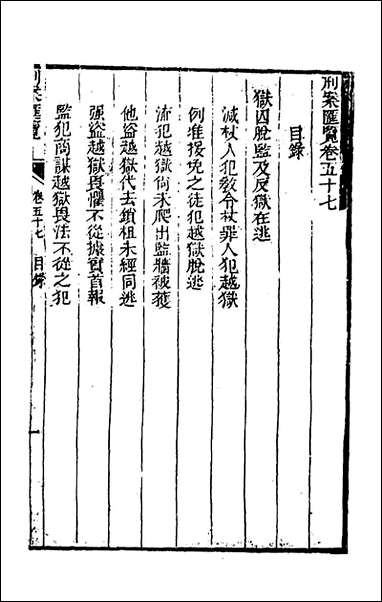 刑案匯覽卷五十七
目錄
獄囚脫監及反獄在逃
減杖人犯敎令杖罪人犯越獄
例准援免之徒犯越獄脫逃
流犯越獄尙未爬出監牆被獲
他盜越獄代去鎖杻未經同逃
强盜越獄畏懼不從據實首報
監犯商謀越獄畏法不從之犯
刑案匯覽
卷五十七 目錄
一